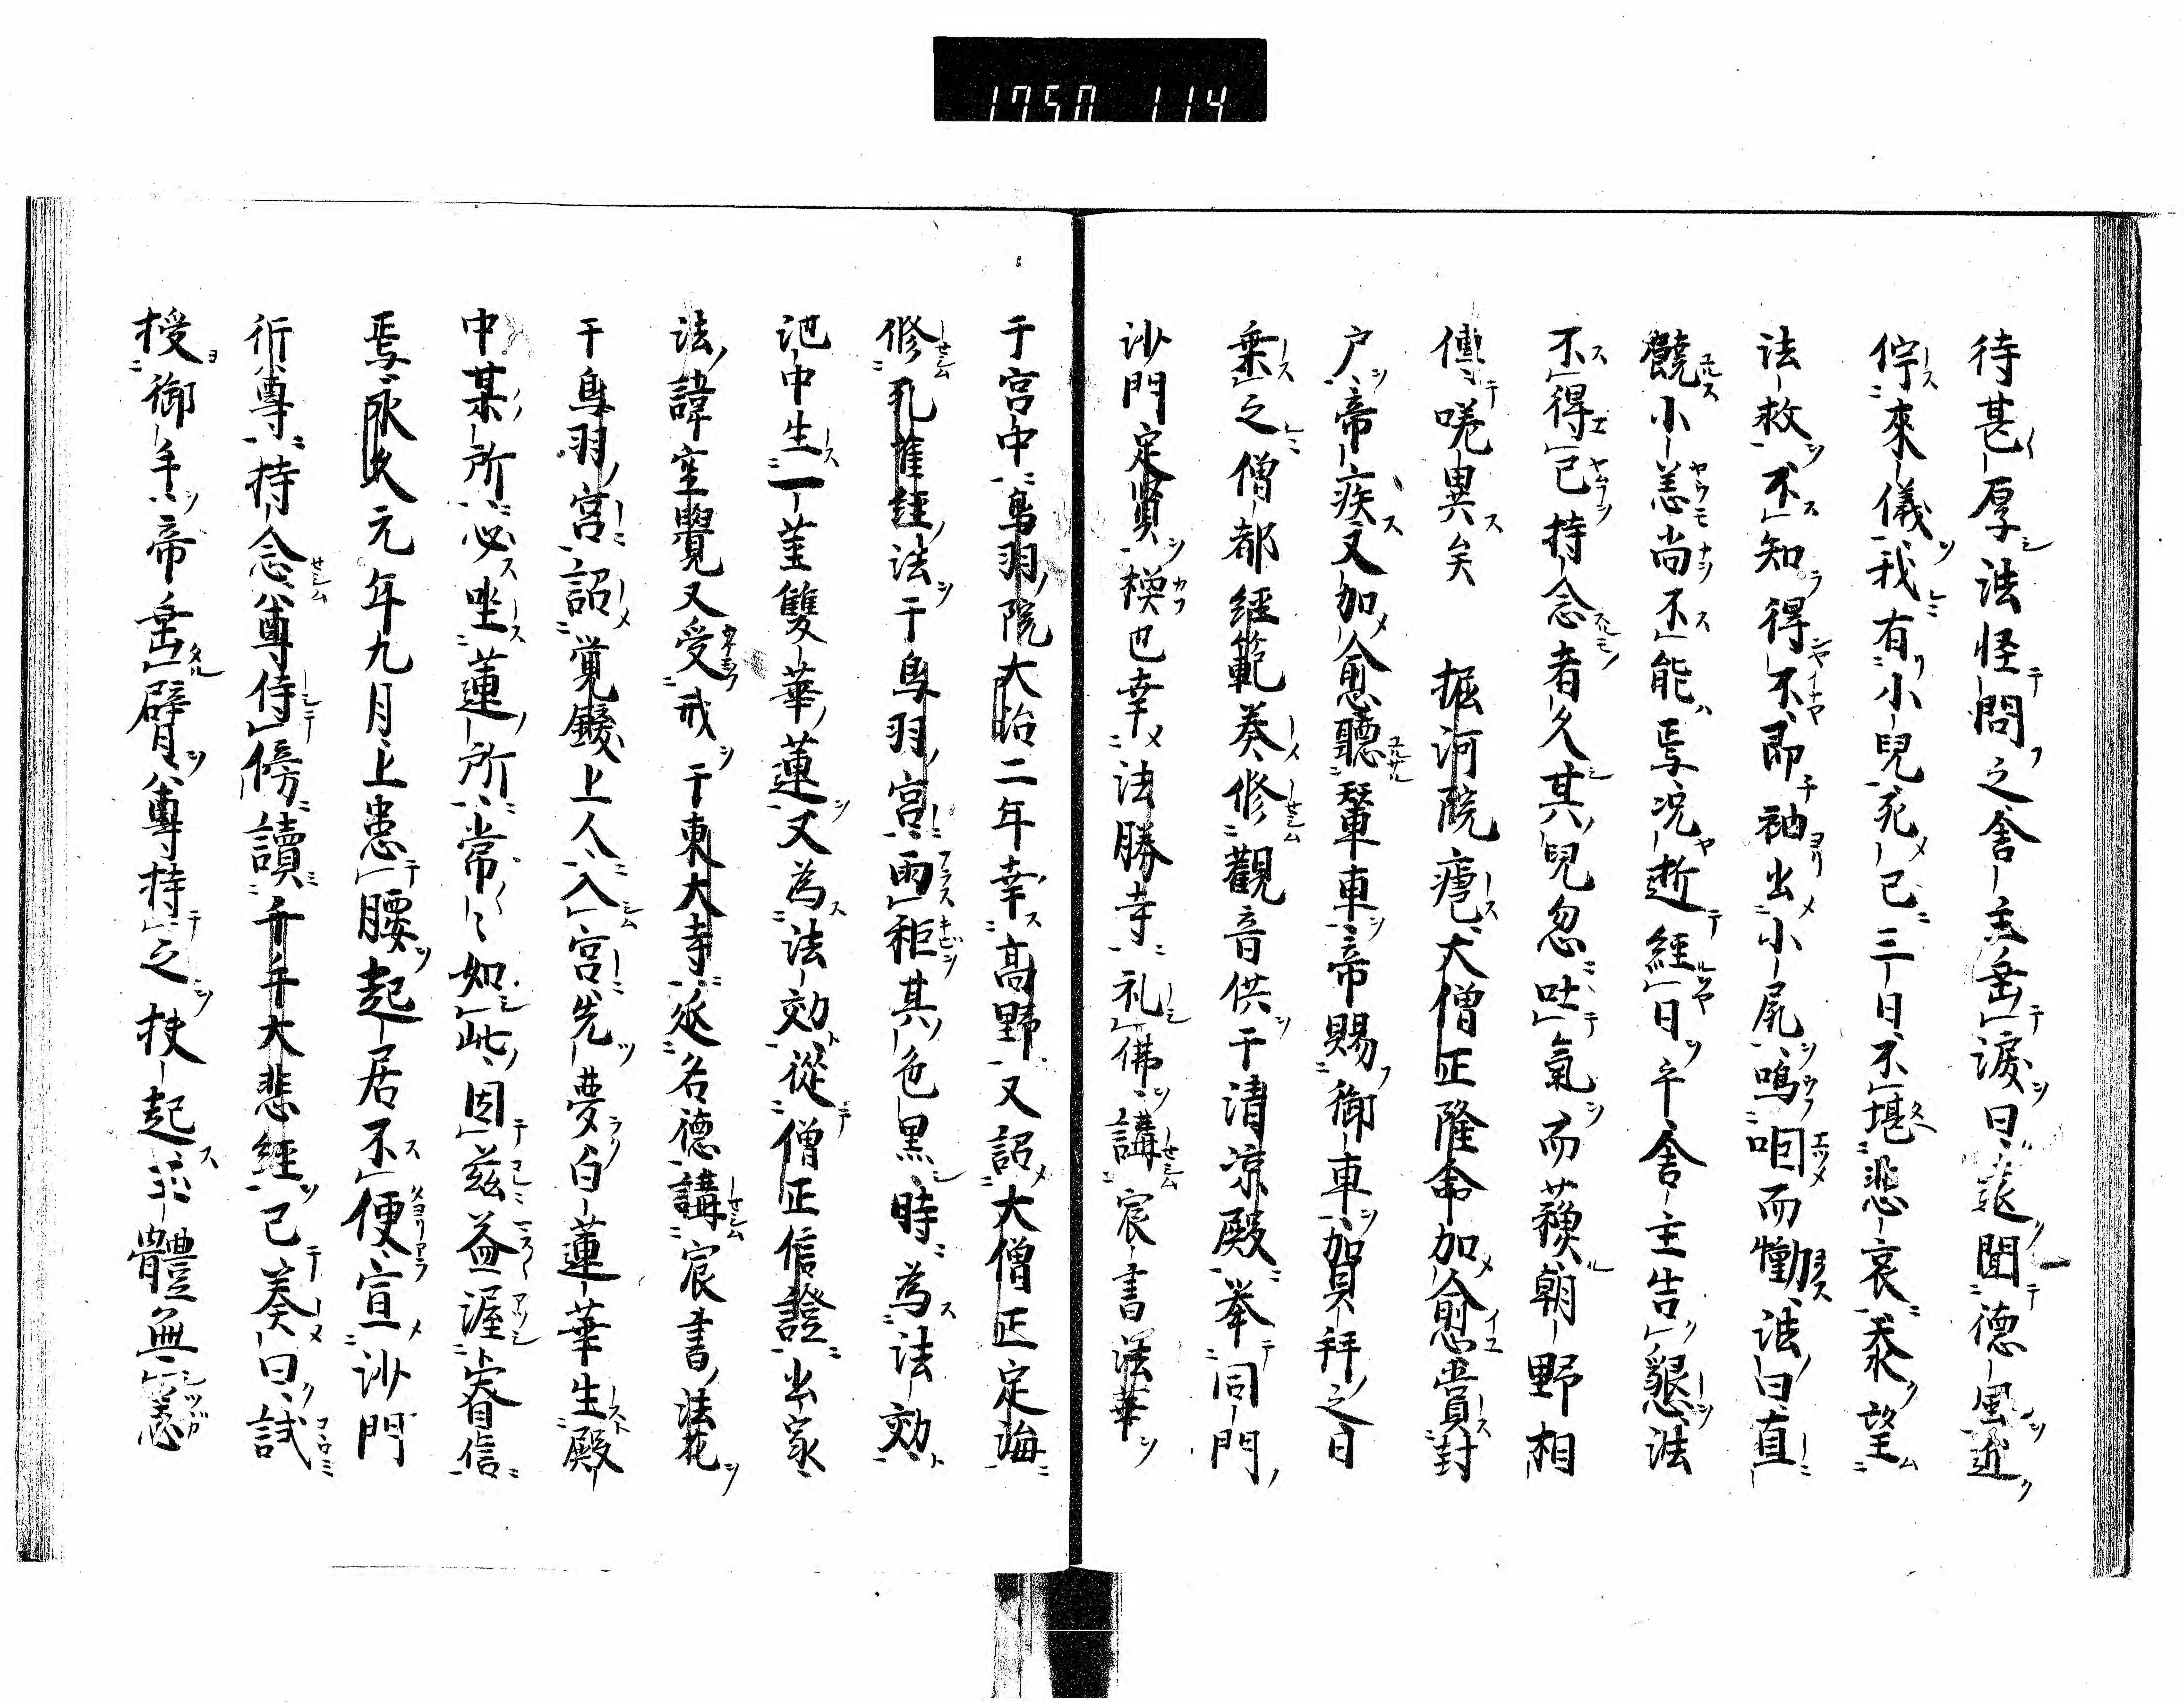 1750 114
待甚厚法怪問之舍主垂涙曰遥聞德風近
佇來儀我有小兒死已三日不堪悲哀忝望
法救不知得不即袖出小尻鳴咽而慟法曰直
饒小恙尚不能焉况逝經日乎舍主告懇法
不得已持念者久其兒忽吐氣而蘓朝野相
傳嘆異矣 堀河院瘧大僧正隆命加愈賞封
户帝疾又加愈聽輦車帝賜御車加員拜之日
乗之僧都經範奏修觀音供于清凉殿举同門
沙門定賢模也幸法勝寺礼佛講宸書法華
于宮中鳥羽院大治二年幸高野又詔大僧正定海
修孔雀經法于鳥羽宮雨秬其色黒時為法効
池中生一莖雙華蓮又為法効從僧正信證出家
法諱空覺又受戒于東大寺延名德講宸書法花
于鳥羽宮詔覚鑁上人入宮先夢白蓮華生殿
中某所必坐蓮所常〻如此因茲益渥睿信
焉永久元年九月上患腰起居不便宣沙門
行尊持念尊侍傍讀千手大悲經已奏曰試
授御手帝垂臂尊持之扶起玉體無恙